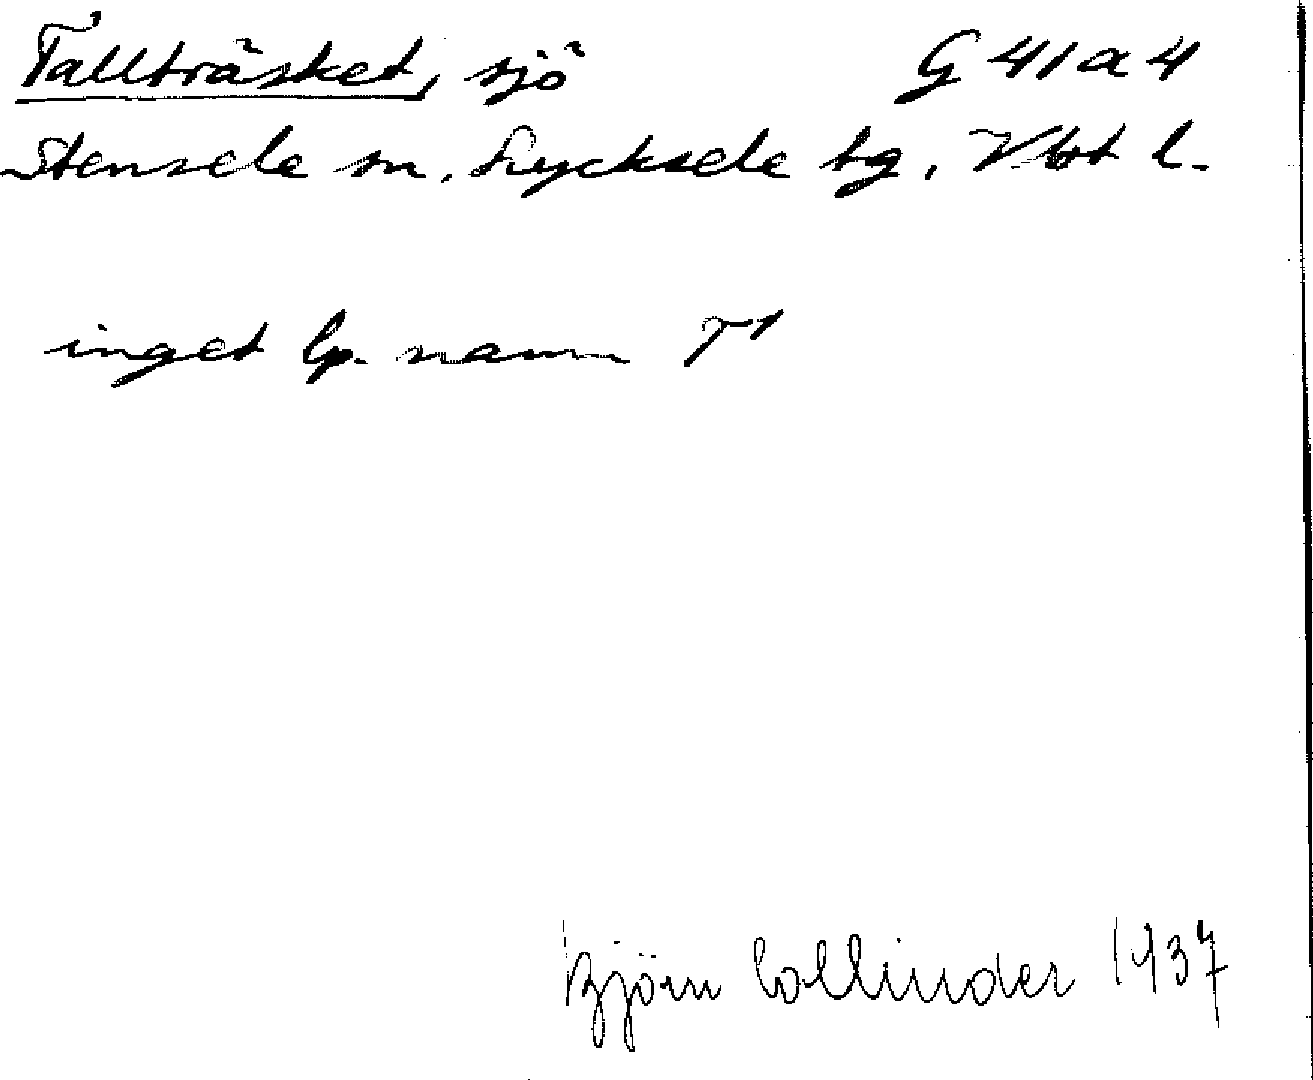 Tallträsket, sjö G 41 a 4
Stensele sn. Lycksele tg. Vbt l.
inget lp. namn T1
Björn Collinder 1937